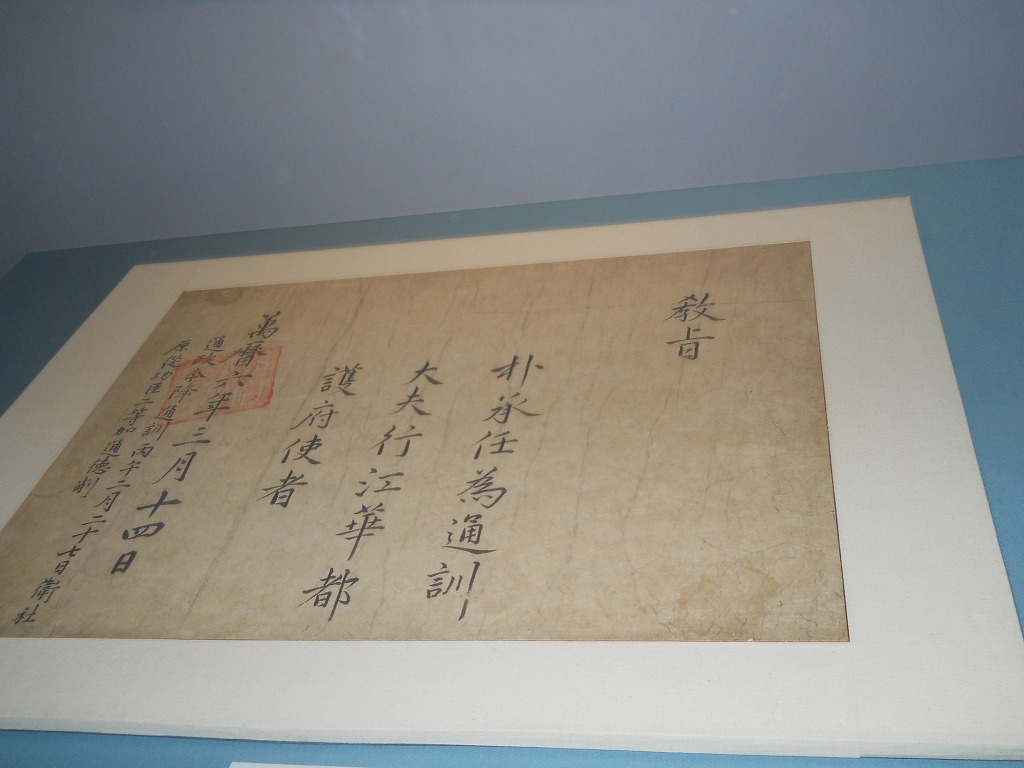 敎旨
朴承任為通訓
大夫行江華都
護府使者
萬曆六年三月十四日
通政今降通訓丙午二月二十七日衛社
原從功臣二等加通德削